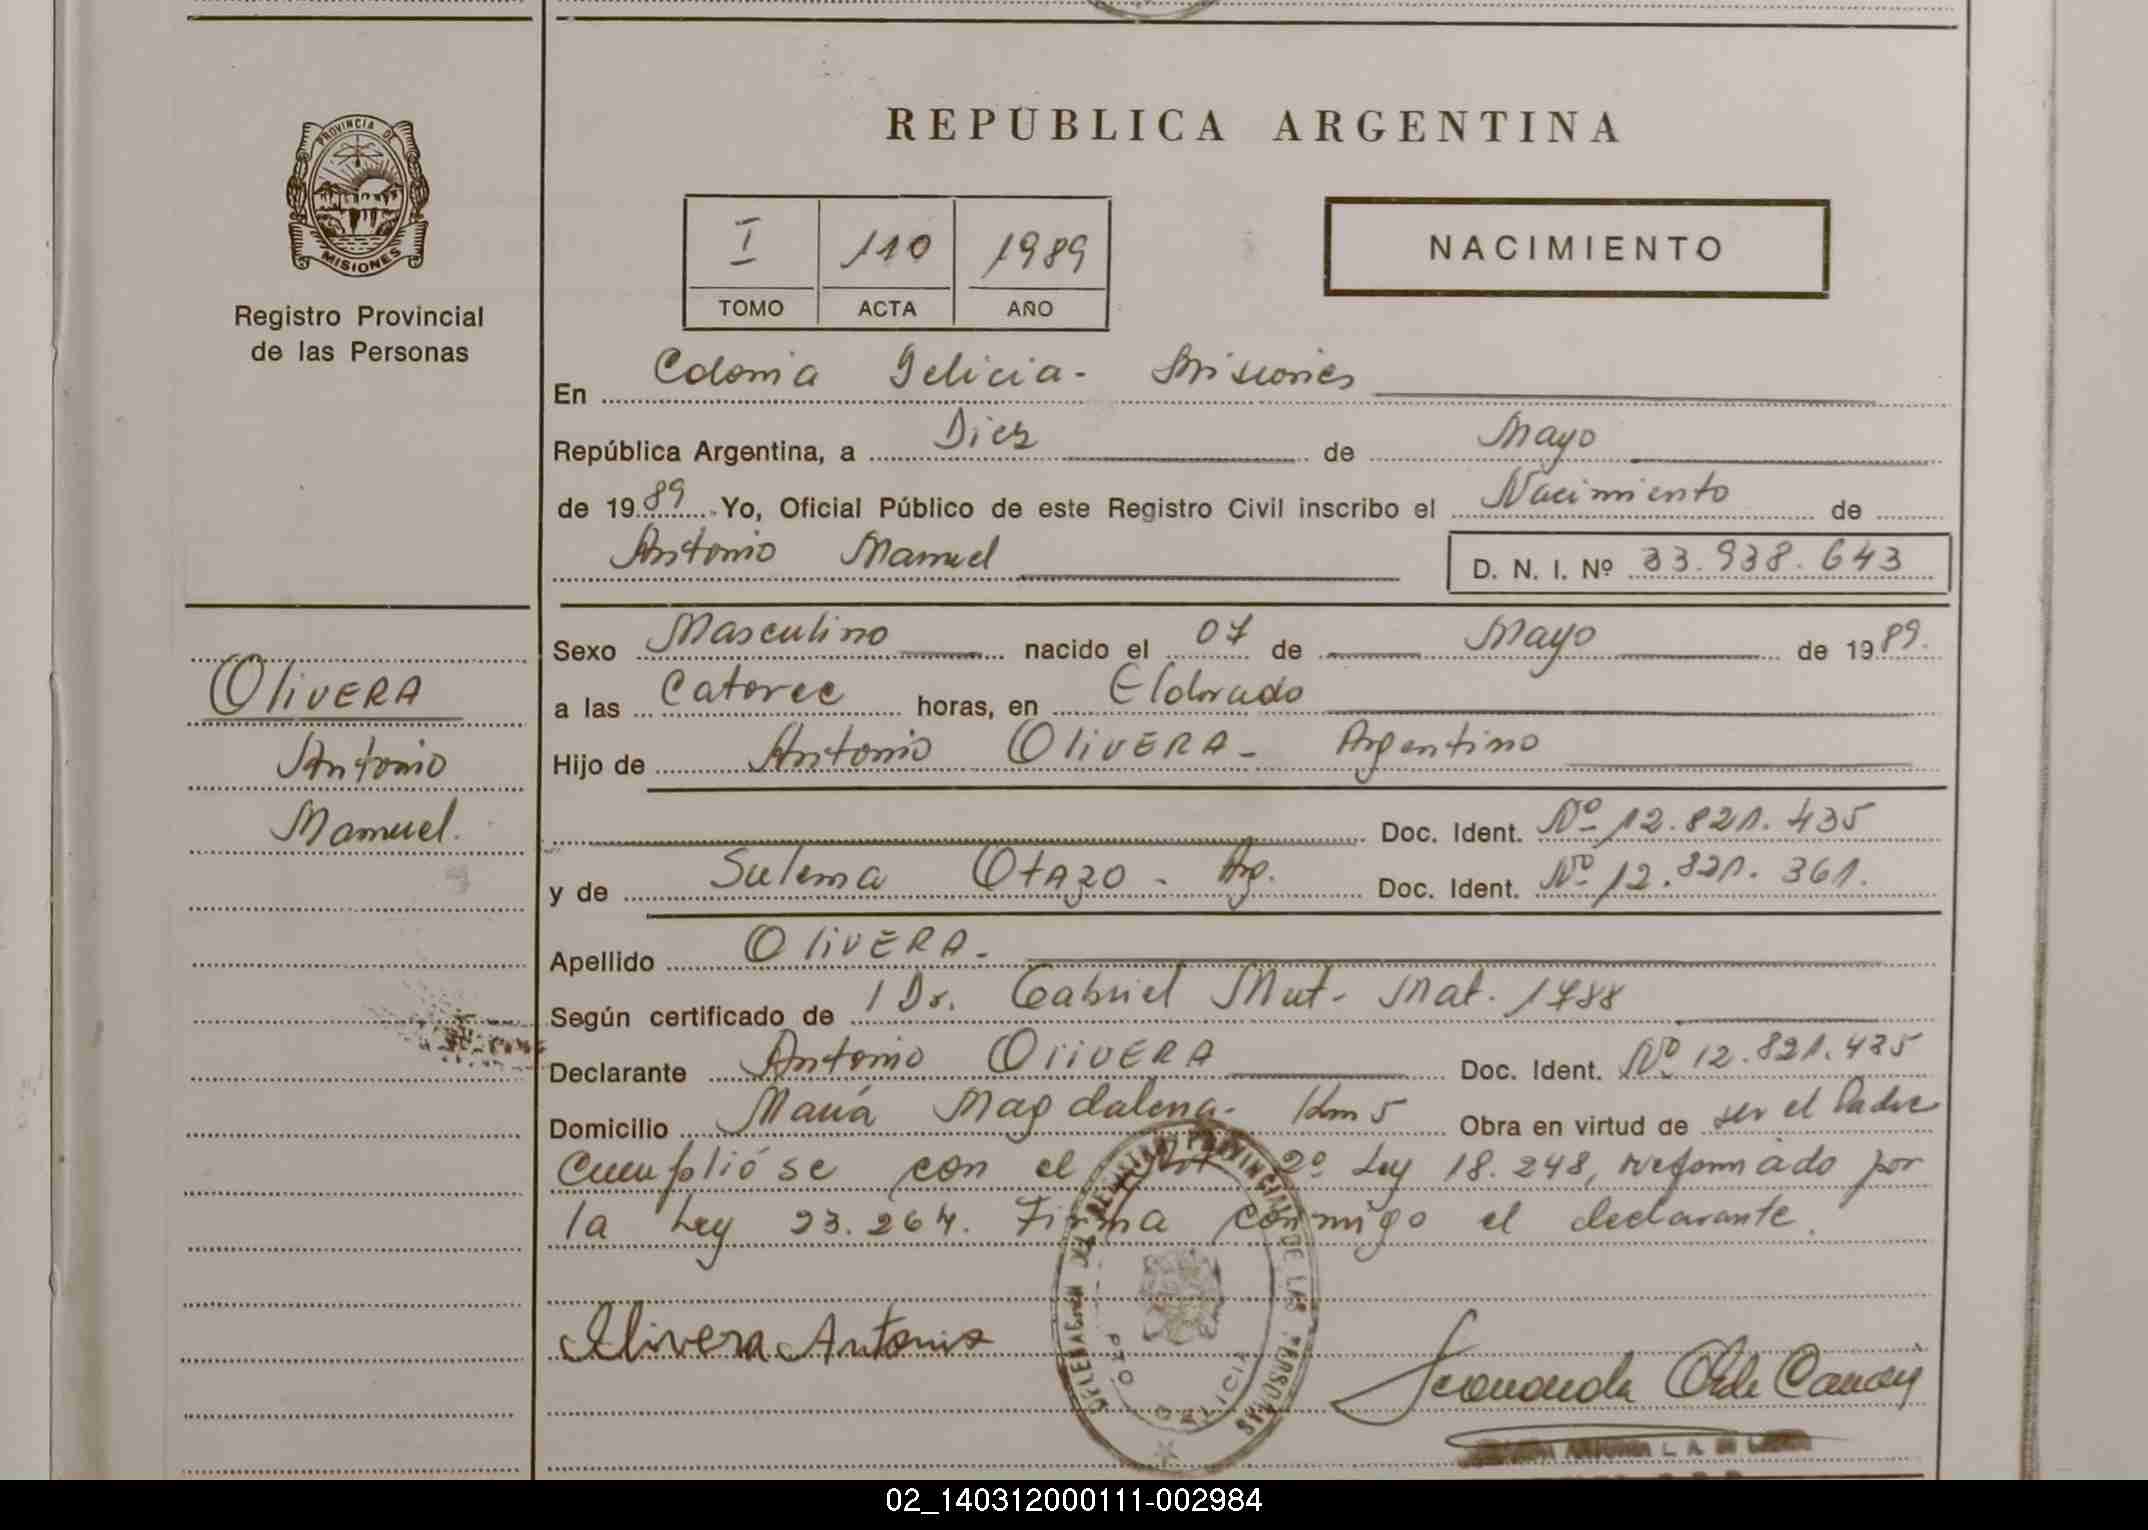 REPUBLICA ARGENTINA
PROVINCIA DE
MISIONES
Registro Provincial
de las Personas
I 110 1989
TOMO ACTA AÑO
NACIMIENTO
En Colonia Delicia - Misiones
República Argentina, a Diez de Mayo
de 1989. Yo, Oficial Público de este Registro Civil inscribo el Nacimiento de
Antonio Manuel D. N. I. Nº 33.938.643
OLIVERA
Antonio
Manuel.
Sexo Masculino nacido el 07 de Mayo de 1989.
a las Catorce horas, en Eldorado
Hijo de Antonio OLIVERA - Argentino
Doc. Ident. Nº 12.821.435
y de Sulema OTAZO - Arg. Doc. Ident. Nº 12.821.361.
Apellido OLIVERA -
Según certificado de Dr. Gabriel Mat. 1788
Declarante Antonio OLIVERA Doc. Ident. Nº 12.821.435
Domicilio María Magdalena - Km 5 Obra en virtud de ser el Padre
Cumplióse con el Art 2º Ley 18.248, reformado por
la Ley 23.264. Firma conmigo el declarante.
DELEGACION DEL REGISTRO PROVINCIAL DE LAS PERSONAS
PTO DELICIA
Olivera Antonio
02_140312000111-002984